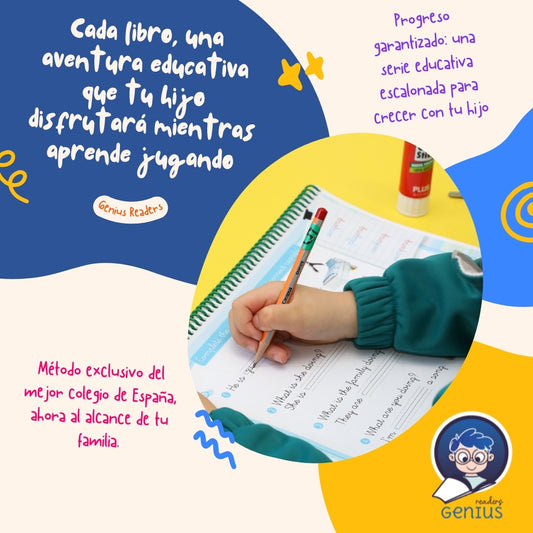 Cada libro, una
aventura educativa
que tu hijo
disfrutará mientras
aprende jugando
Genius Readers
Progreso
garantizado: una
serie educativa
escalonada para
crecer con tu hijo
PLUS
Complete the
He is
What is she doing?
She is
a song.
What is the family doing?
They are
What are you doing?
I'm
Método exclusivo del
mejor colegio de España,
ahora al alcance de tu
familia.
readers
GENIUS